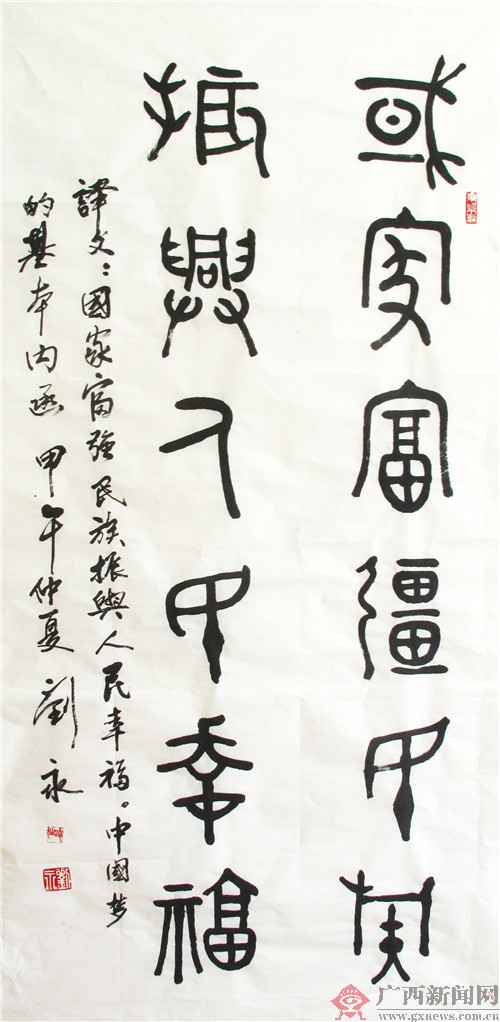 或家富彊民族
振興人民幸福
譯文：國家富強民族振興人民幸福。中國梦
的基本内涵 甲午仲夏 劉永
劉永
广西新闻网
www.gxnews.com.cn